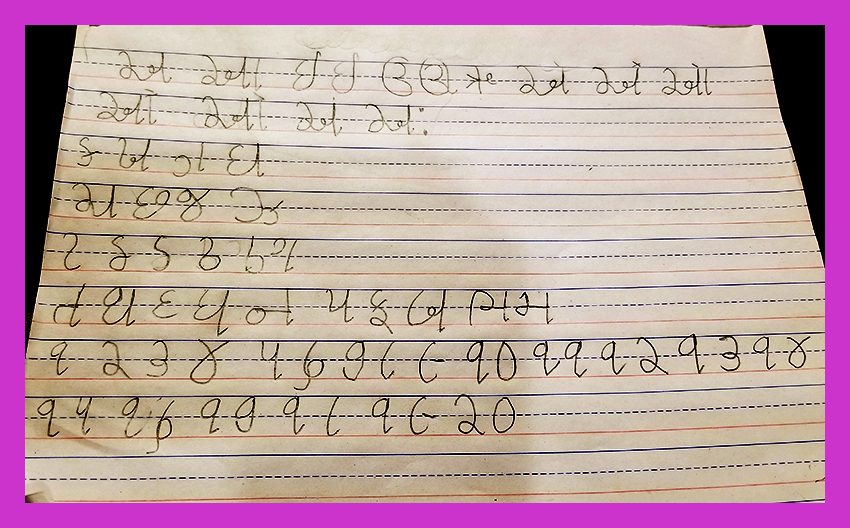 અ આ ઇ ઈ ઉ ઊ ઋ એ ઐ ઓ
ઔ અં અઃ
ક ખ ગ ઘ
ચ છ જ ઝ
ટ ઠ ડ ઢ ણ
ત થ દ ધ ન પ ફ બ ભ મ
૧ ૨ ૩ ૪ ૫ ૬ ૭ ૮ ૯ ૧૦ ૧૧ ૧૨ ૧૩ ૧૪
૧૫ ૧૬ ૧૭ ૧૮ ૧૯ ૨૦